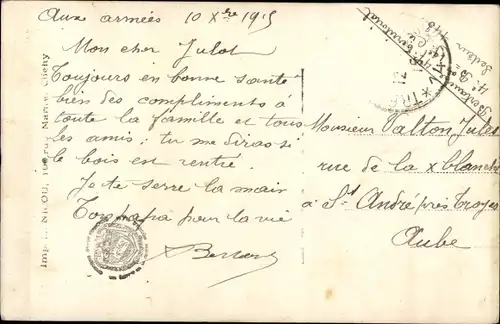 Aux armées 10 Xbre 1915
Mon cher Julot
Toujours en bonne santé
bien des compliments à
toute la famille et tous
les amis; tu me diras si
le bois est rentré.
Je te serre la main
Ton papa pour la vie
Monsieur Valton Jules
rue de la x blanche
à St André près Troyes
Aube
territorial
Secteur 148
Imp. NICOU, rue Clichy